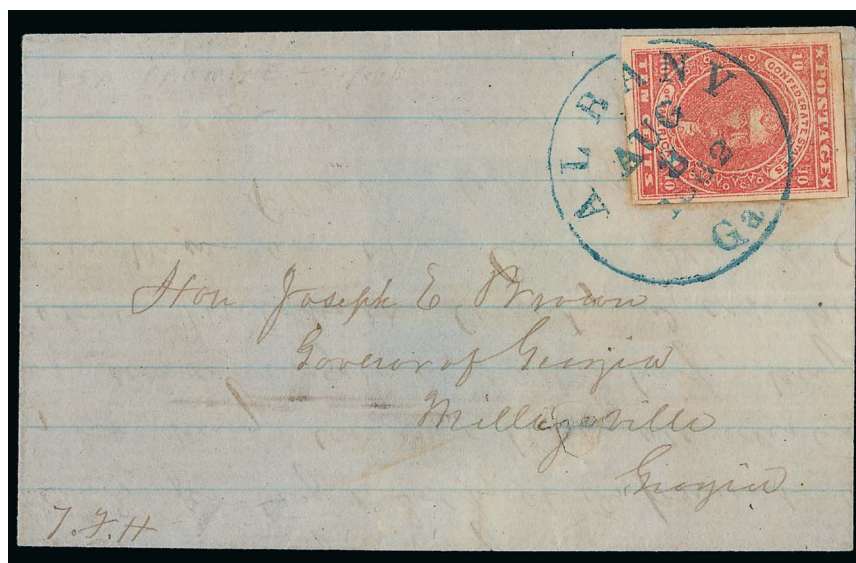 ALBANY Ga
AUG
5
1862
POSTAGE
CONFEDERATE STATES
TEN CENTS
10 10
10
Hon Joseph E Brown
Governor of Georgia
Milledgeville
Georgia